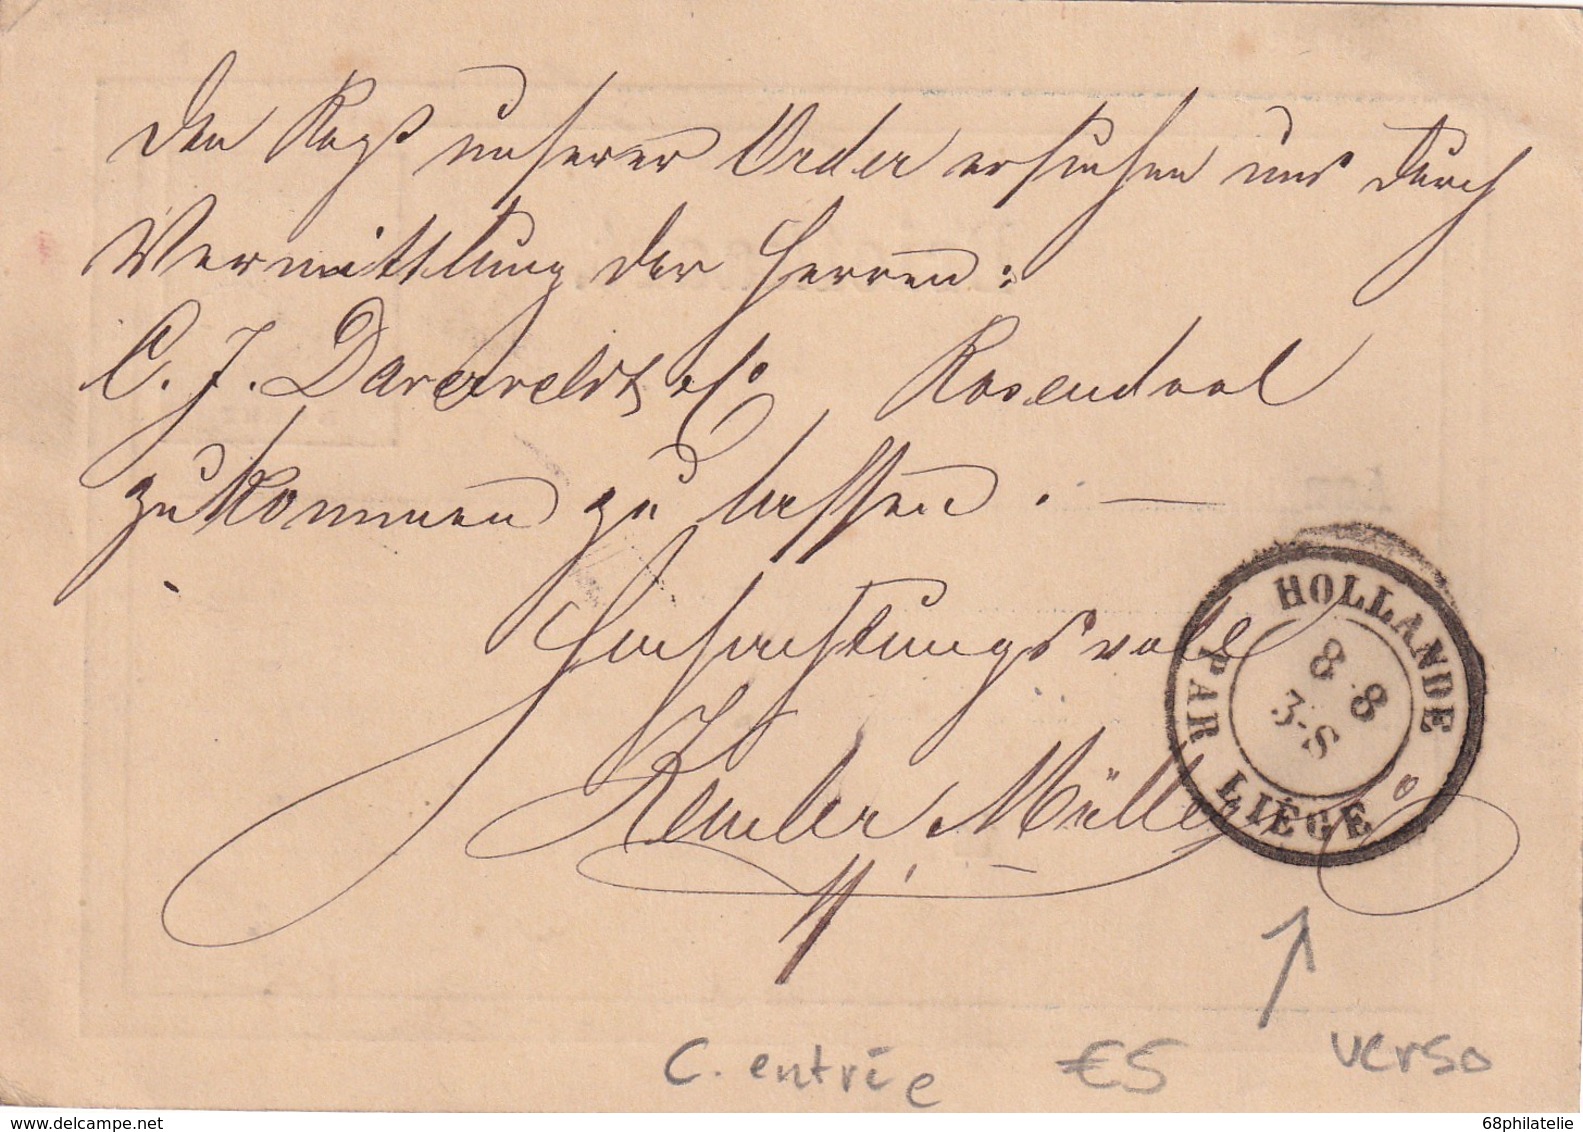 Den Rest unserer Order ersuchen uns durch
Vermittlung der Herren:
C. J. Darerveldt & Co Rosendaal
zukommen zu lassen. —
Hochachtungsvoll
Müller
HOLLANDE
PAR LIÉGE
8 8
3-S
C. entrée €5 verso
delcampe.net
68philatelie